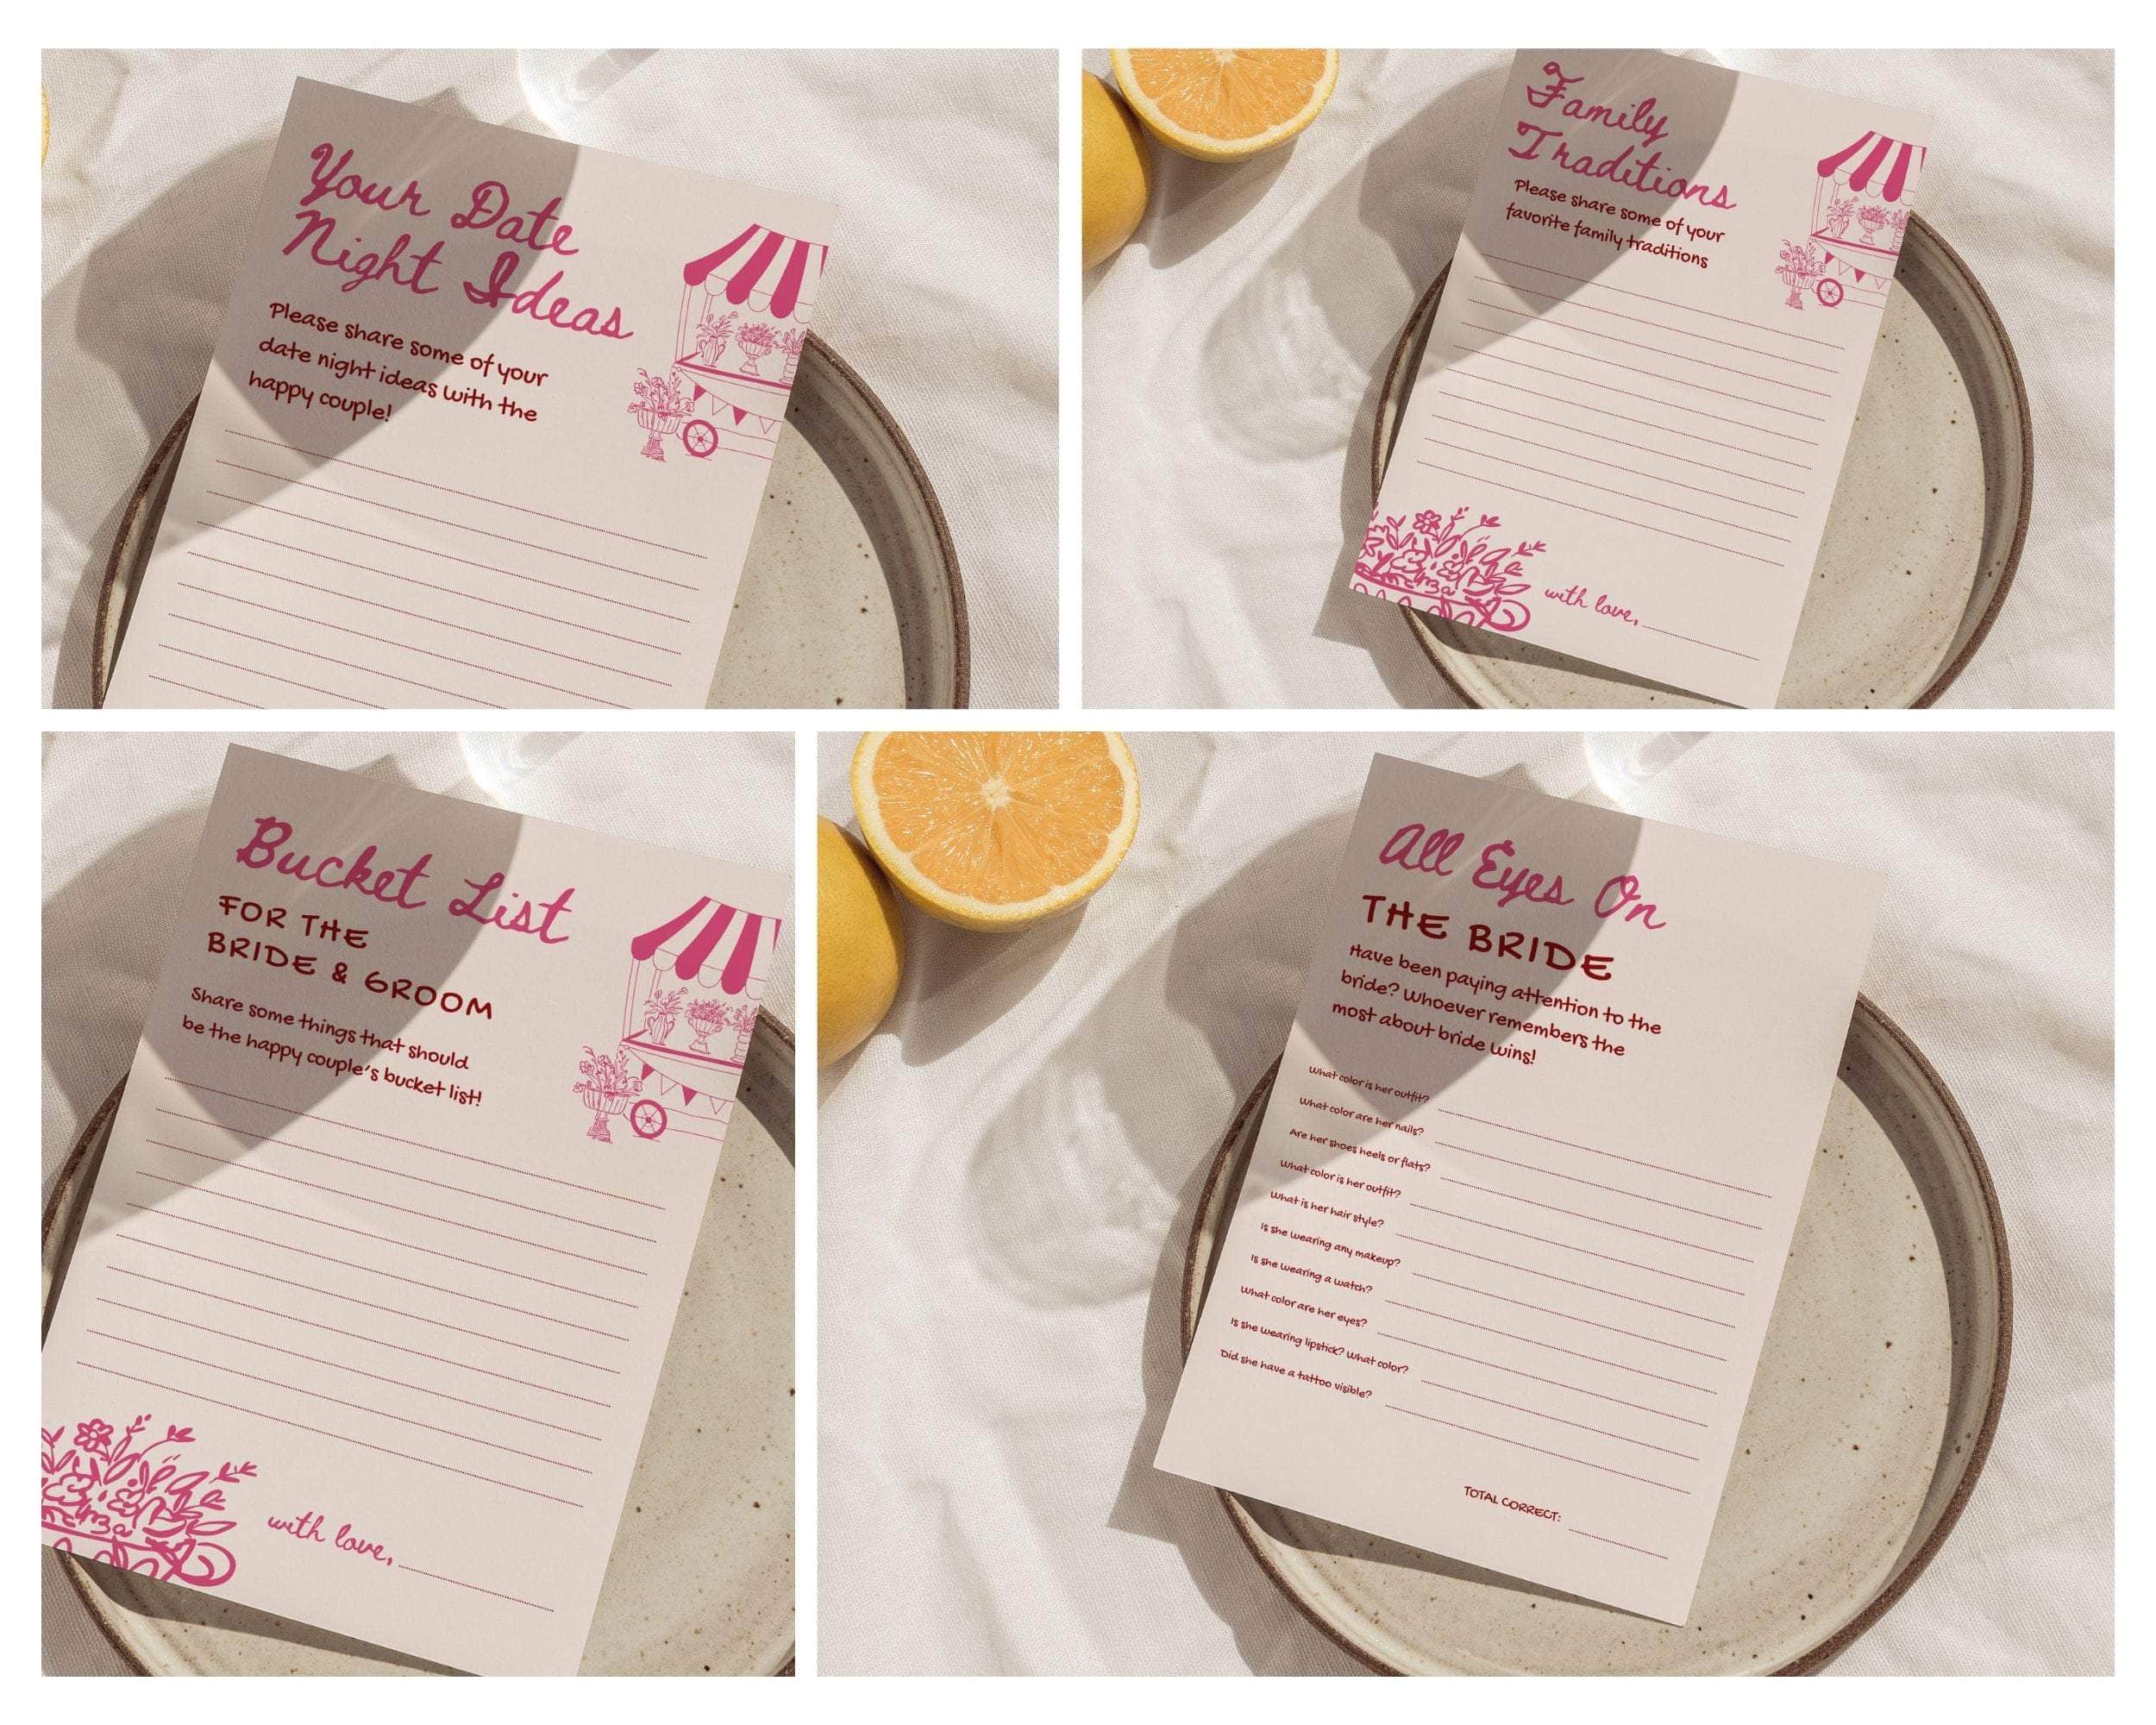 Your Date
Night Ideas
Please share some of your
date night ideas with the
happy couple!
Family
Traditions
Please share some of your
favorite family traditions
with love,
Bucket List
FOR THE
BRIDE & GROOM
Share some things that should
be the happy couple's bucket list!
with love,
All Eyes On
THE BRIDE
Have been paying attention to the
bride? Whoever remembers the
most about bride wins!
What color is her outfit?
What color are her nails?
Are her shoes heels or flats?
What color is her outfit?
What is her hair style?
Is she wearing any makeup?
Is she wearing a watch?
What color are her eyes?
Is she wearing lipstick? What color?
Did she have a tattoo visible?
TOTAL CORRECT: